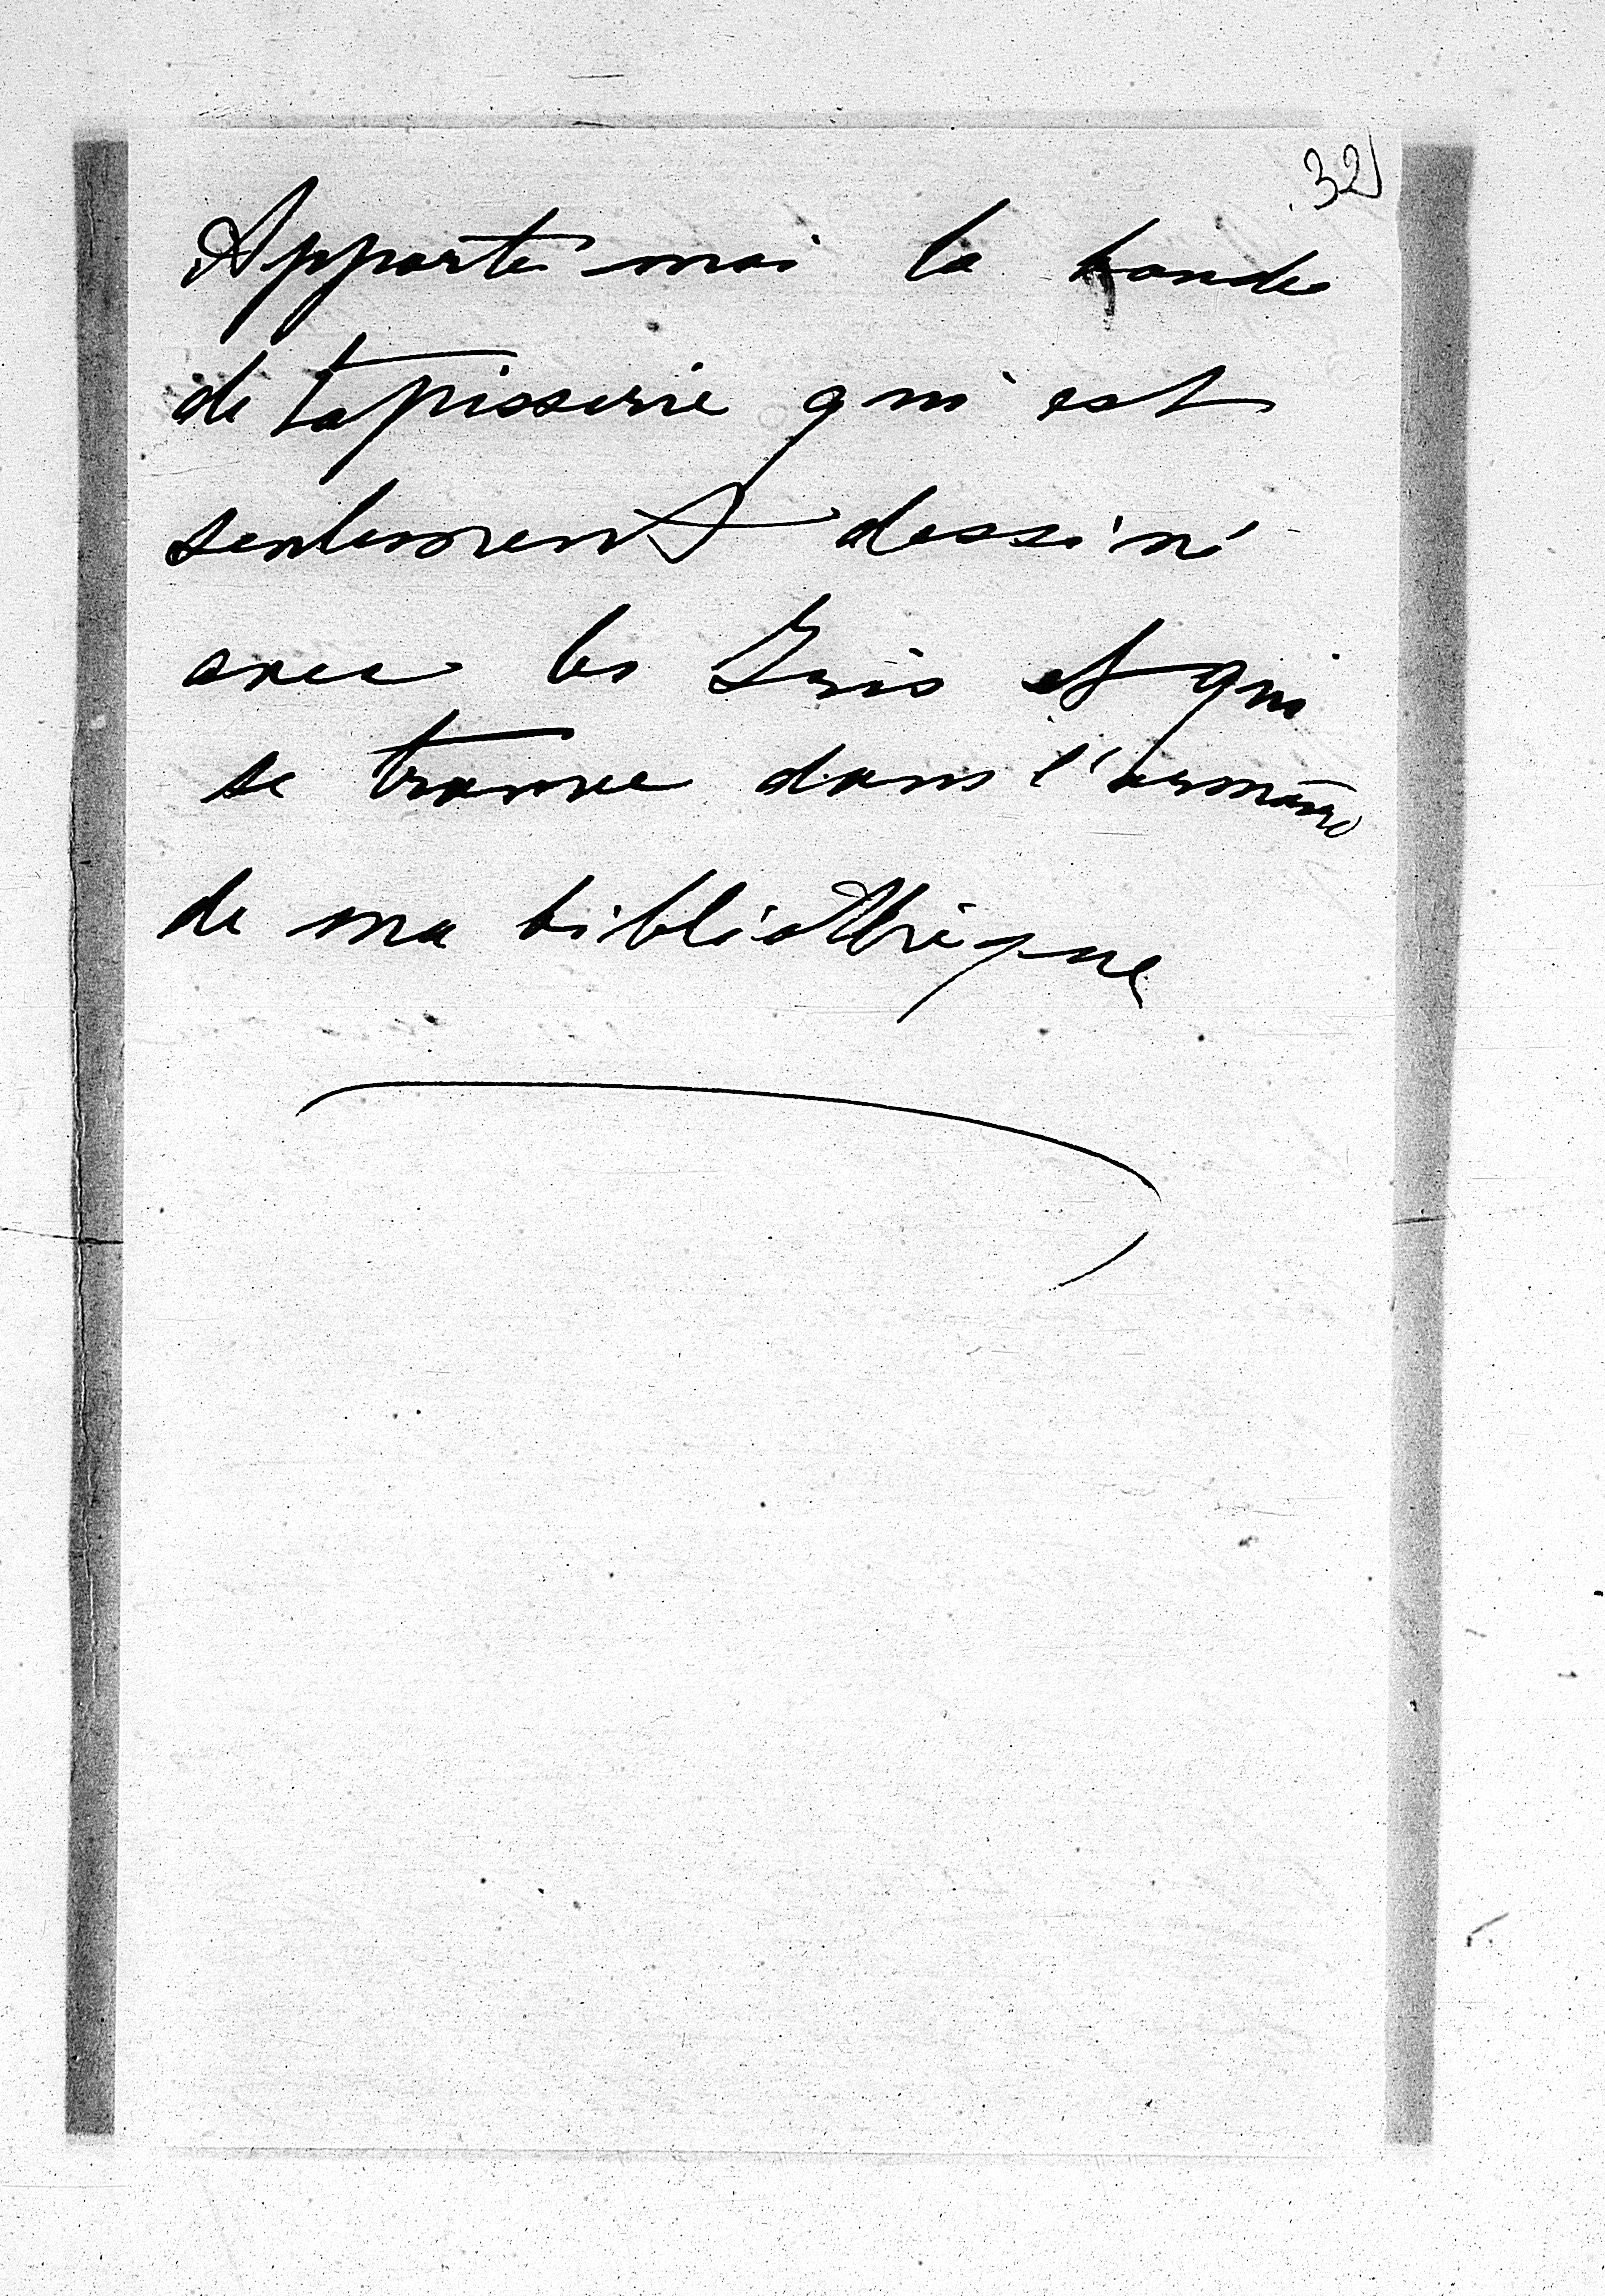 32
Apporte moi la bande
de tapisserie qui est
seulement dessiné
avec les Iris et qui
se trouve dans l'armoire
de ma bibliothèque